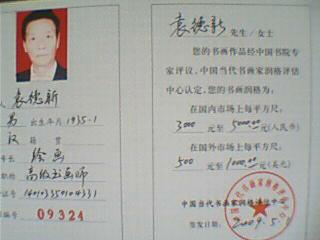 人 袁德新
男 出生年月 1935.1
汉 籍贯
号长 绘画
职称 高级书画师
证号
编号 09324
袁德新 先生/女士
您的书画作品经中国书院专
家评议，中国当代书画家润格评估
中心认定，您的书画润格为：
在国内市场上每平方尺：
3000 元至 5000.00 元(人民币)
在国外市场上每平方尺：
500 元至 1000.00 元(美元)
中国当代书画家润格评估中心
签发日期： 2009.5